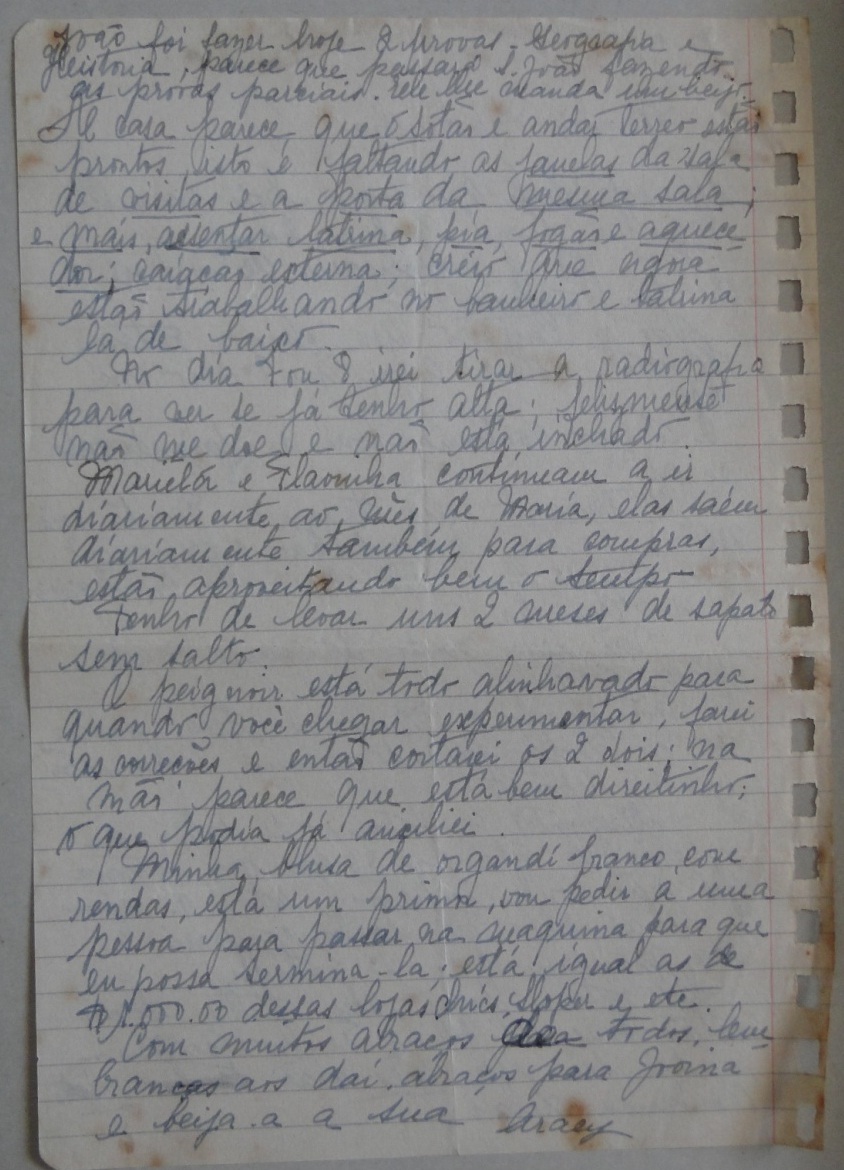 João foi fazer hoje 2 provas - Geografia e
Historia, parece que passará S. João fazendo
as provas parciais. Ele lhe manda um beijo.
A casa parece que o sotão e andar terreo estão
prontos, isto é, faltando as janelas da sala
de visitas e a porta da mesma sala;
e mais, assentar latrina, pia, fogão e aquece
dor; caiação externa; creio que agora
estão trabalhando no banheiro e latrina
lá de baixo.
No dia 7 ou 8 irei tirar a radiografia
para ver se já tenho alta; felismente
não me doe e não está inchado.
e Flavinha continuam a ir
diariamente ao mês de Maria, elas saém
diariamente também para compras,
estão aproveitando bem o tempo
Tenho de levar uns 2 meses de sapato
sem salto.
O peignoir está todo alinhavado para
quando você chegar experimentar, farei
as correções e então cortarei os 2 dois; na
mão parece que está bem direitinho;
o que podia já auxiliei.
Minha blusa de organdi branco, com
rendas, está um primor, vou pedir a uma
pessoa para passar na maquina para que
eu possa termina-la; está igual as de
1.000.00 dessas lojas chics, Sloper e etc.
Com muitos abraços a todos, lem
branças aos daí, abraços para
e beija-a a sua Aracy